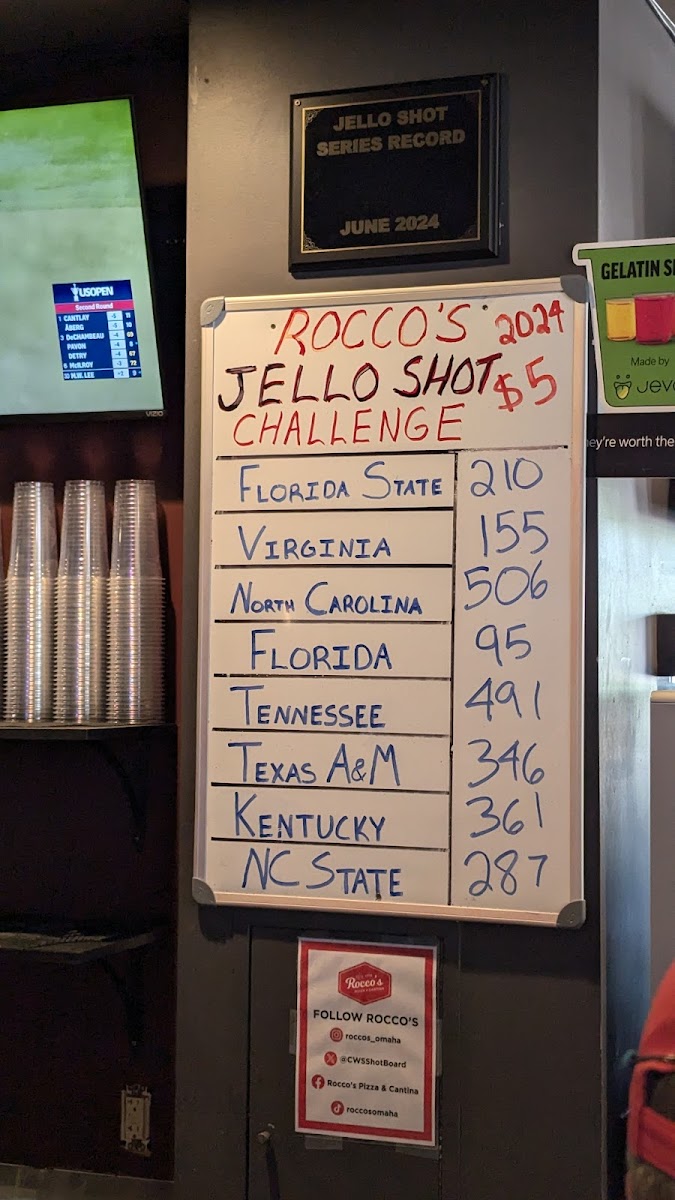 JELLO SHOT
SERIES RECORD
JUNE 2024
USOPEN
Second Round
1 CANTLAY -5 11
ÅBERG -5 10
3 DeCHAMBEAU -4 69
PAVON -4
DETRY -4 67
6 McILROY 72
M.W. LEE
VIZIO
ROCCO'S 2024
JELLO SHOT $5
CHALLENGE
FLORIDA STATE 210
VIRGINIA 155
NORTH CAROLINA 506
FLORIDA 95
TENNESSEE 491
TEXAS A&M 346
KENTUCKY 361
NC STATE 287
GELATIN
Made by
they're worth the
Rocco's
FOLLOW ROCCO'S
roccos_omaha
@CWSShotBoard
Rocco's Pizza & Cantina
roccosomaha